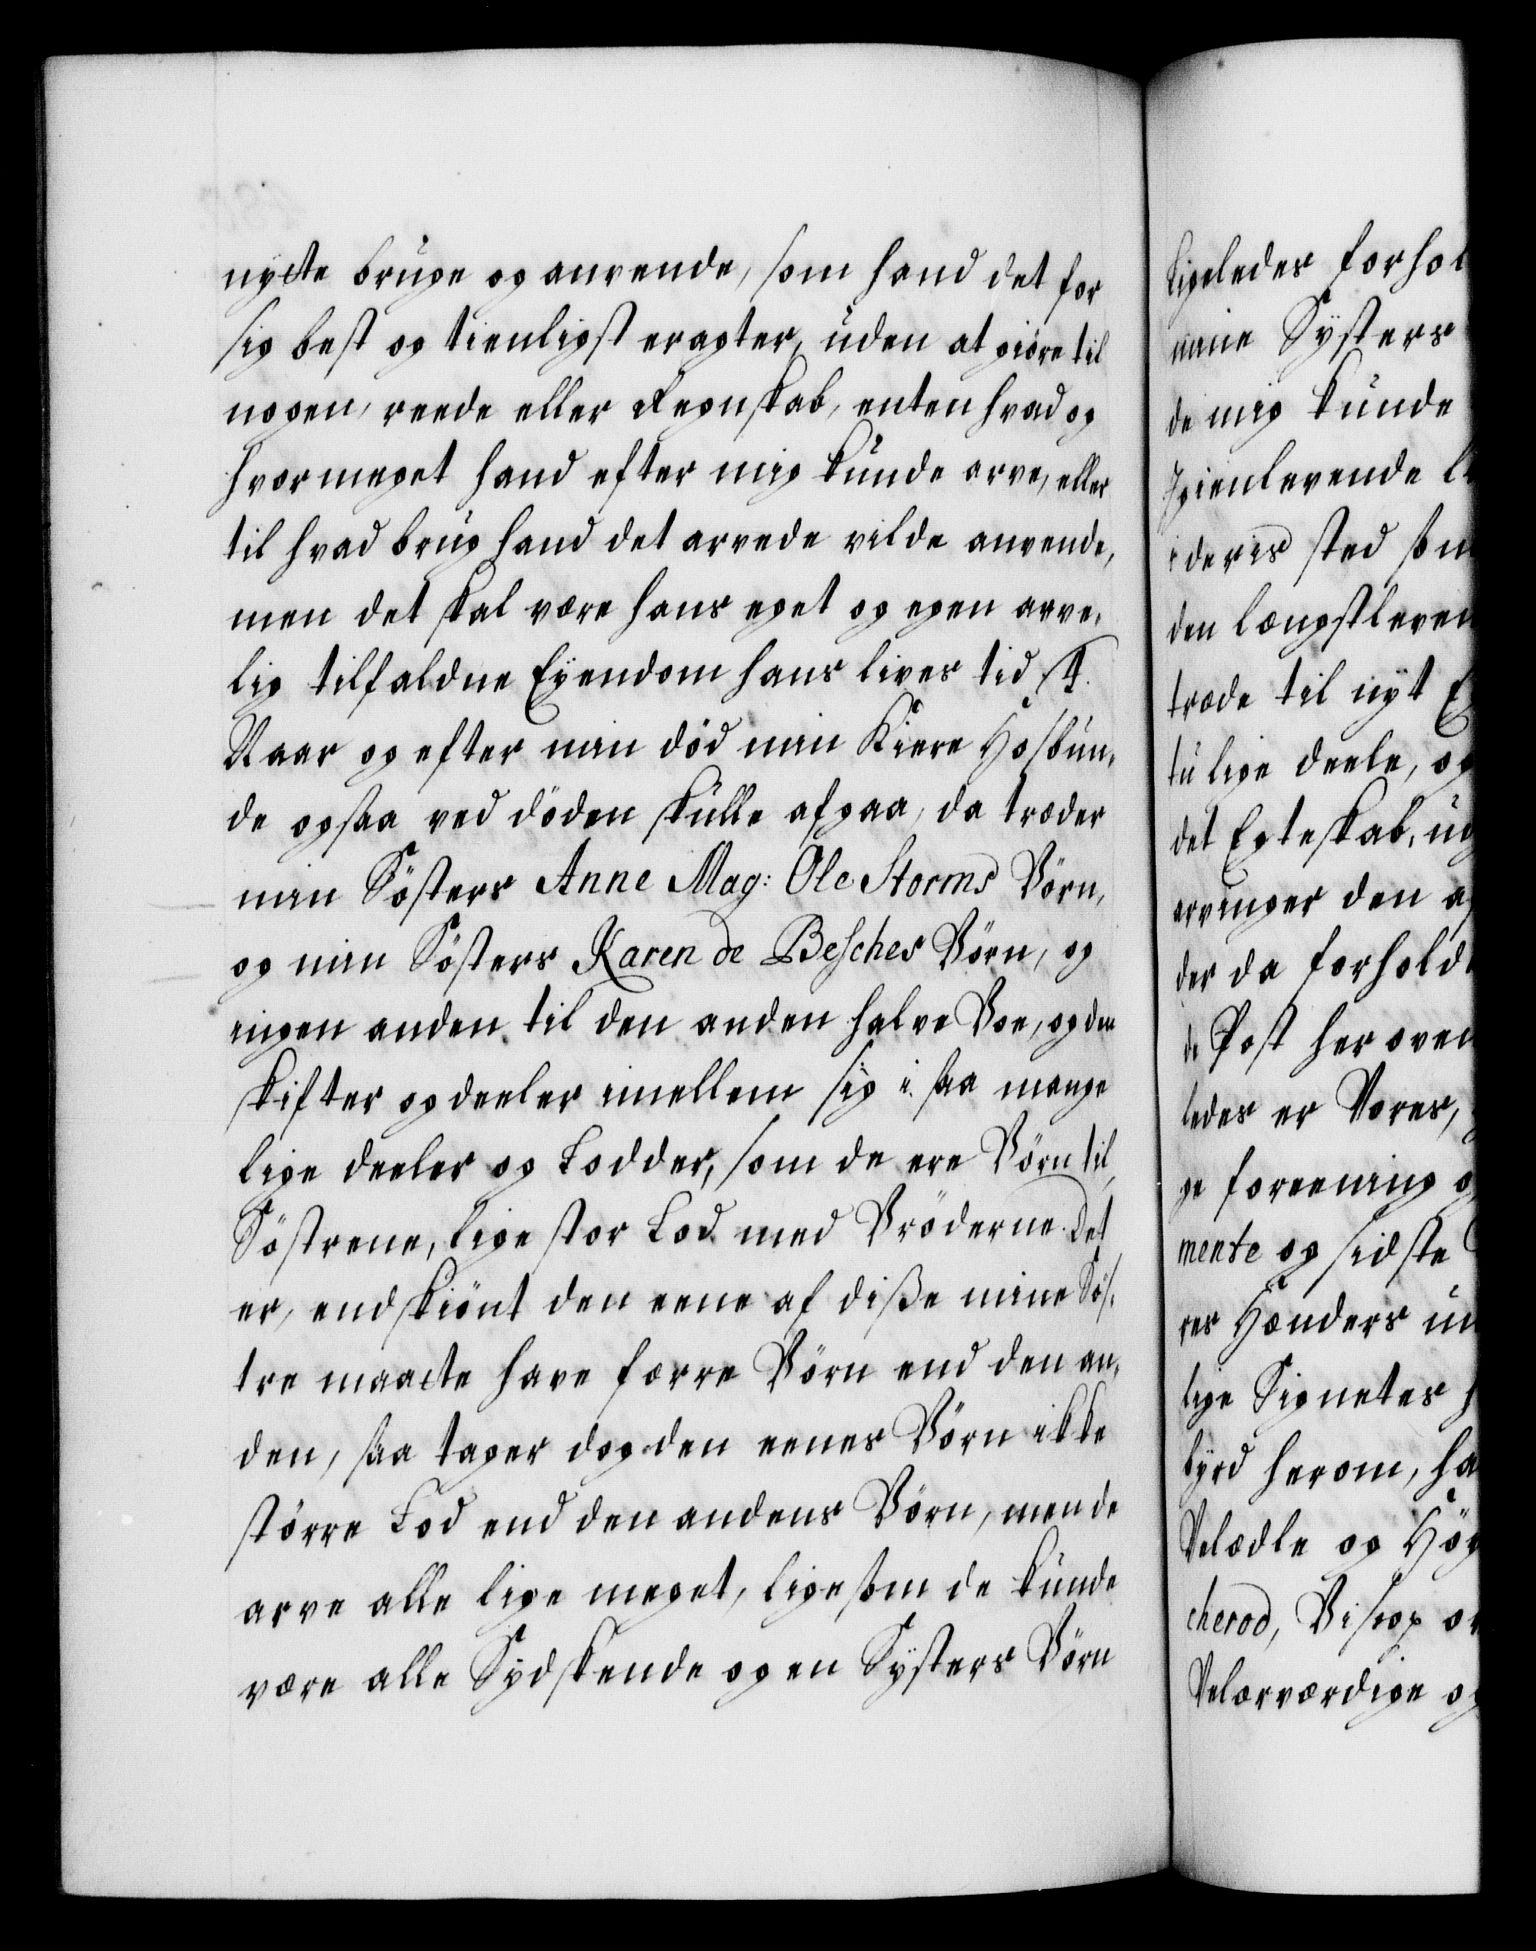 nytte bruge og anvende, som hand det for
sig best og tienligst eragter, uden at giöre til
nogen, reede eller Regnskab, enten hvad og
hvor meget hand efter mig kunde arve, eller
til hvad brug hand det arvede vilde anvende,
men det skal være hans eget og egen arve,
lig tilfaldne Eyendom hans lives tid
Naar og efter min död min Kiere Hosbun,
de ogsaa ved döden skulle afgaa, da træder
min Sösters Anne Mag: Ole Storms Börn,
og min Sösters Karen de Besches Börn, og
ingen anden til den anden halve Boe, og den
skifter og deeler imellem sig i saa mange
lige deeler og Lodder, som de ere Börn til,
Söstrene, lige stor Lod med Bröderne. Det
er, endskiönt den eene af diße mine Sös,
tre maatte have færre Börn end den an,
den, saa tager dog den eenes Börn ikke
större Lod end den andens Börn, men de
arve alle lige meget, ligesom de kunde
være alle Sydskende og en Systers Börn
ligeledes forhol
mine Systers
de mig kunde
Igienlevende
i deris sted som
den længstleven
træde til nyt
tu lige deele, og
det Egteskab, ud
arvinger den
der da forhold
de Post her oven
ledes er Vores,
ge foreening
mente og sidste
res Hænders un
lige Signeter
byrd herom, ha
Velædle og Höy
cherod, Biscop
Velærværdige og